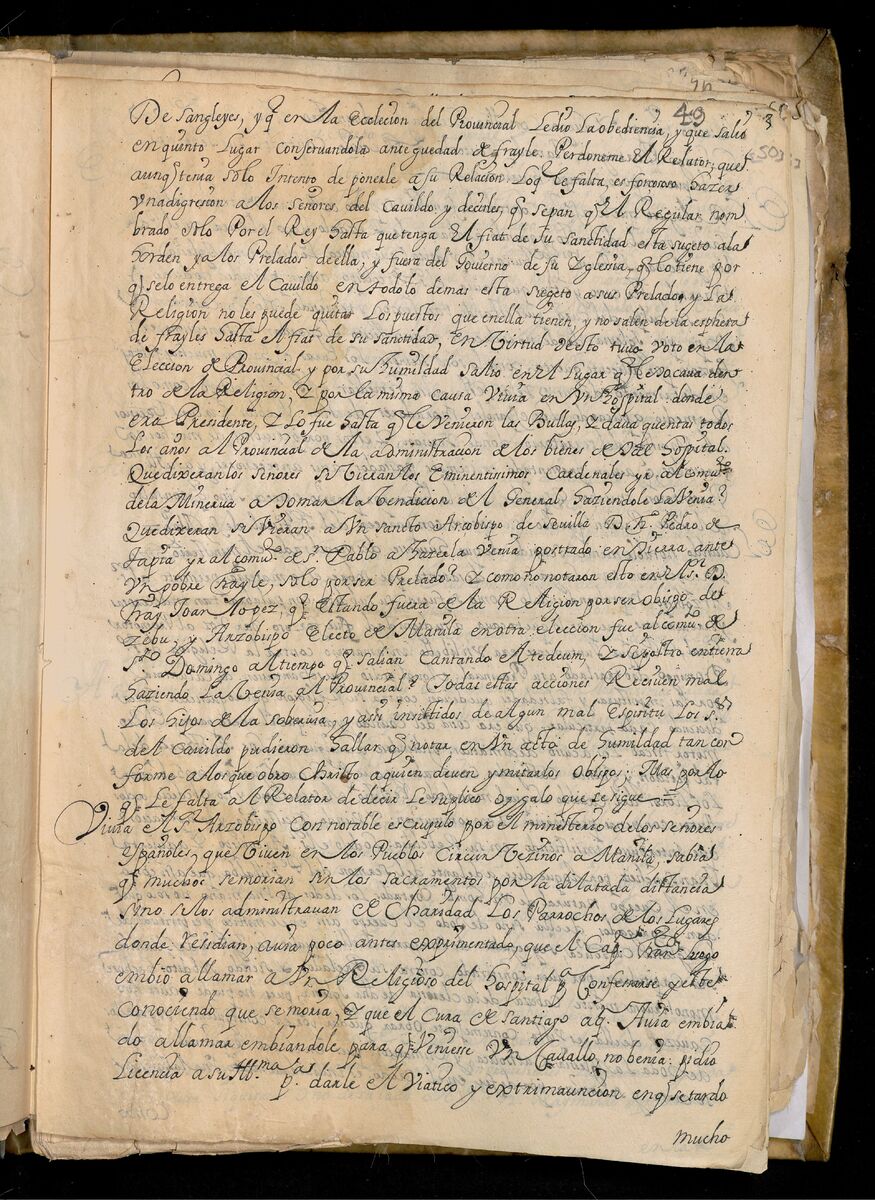 49
3
De sangleyes, y q̃ en la Ecelecion del Provincial Ledio La obediencia, y que salio
en quinto Lugar Conseruandola anteguedad de frayle. Perdoneme El Relator, que
aunq̃ tenia solo Intento de ponerle a su Relacion Loq̃ le falta, es forcoso hazer
vna digrecion a los señores del Cauildo y decirles, q̃ sepan q̃ El Regular nom
brado solo Por el Rey hasta que tenga El fiat de su sanctidad esta sugeto a la
horden ya los Prelados de ella, y fuera del Gouierno de su Yglesia, q̃ lo tiene por
q̃ selo entrega el Cauildo en todo lo demas esta sugeto a sus Prelados, y La
Religion no les puede quitar Los puestos que en ella tienen, y no salen de la esphera
de frayles hasta el fiat de su sanctidad, en Virtud desto tuuo voto en la
Eleccion de Prouincial y por su humildad salio en el Lugar q̃ le tocaua den
tro de la Religion, Y por la misma causa Viuia en Vn hospital donde
era Presidente, Y Lo fue hasta q̃ le Venieron las Bullas, Y daua quentas todos
Los años al Prouincial de la administracion de los bienes de dho hospital.
Que dixeran los señores si Vieran los Eminentissimos Cardenales yr al comu.to
de la Minerua a tomar la Vendicion del General haziendole La Venia?
Que dixeran si Vieran a Vn sancto Arcobispo de seuilla D. F. Pedro de
Tapia yr al comu.to de s. Pablo a hazer la Venia postrado en tierra ante
Vn pobre frayle, solo por ser Prelado? Y como no notaron esto en el s.r D.
fray Joan Lopez q̃ Estando fuera de la Religion por ser obispo de
Zebu, y Arzobispo Electo de Manila en otra eleccion fue al comu.to de
s.to Domingo al tiempo q̃ salian Cantando el tedeum, Y se postro en tierra
haziendo La Venia al Prouincial? Todas estas acciones Reciuen mal
Los hijos de la soberuia, y assi insistidos de algun mal Espiritu Los s.res
del Cauildo pudieron hallar q̃ notar en Vn acto de humildad tan con
forme a los que obro Christo a quien deuen ymitar los obispos: Mas por lo
q̃ Le falta al Relator de decir Le suplico oygalo que se sigue
Viuia el s.r Arzobispo con notable escrupulo por el ministerio de los señores
españoles, que Viuen en los Pueblos Circun Vezinos a Manila, sabia
q̃ muchos se morian sin los sacramentos por la dilatada distancia
sino se los administrauan de Charidad Los Parrochos de los Lugares
donde residian, auia poco antes experimentado, que el Cap.n fran.co
embio a llamar a Vn Religioso del hospital p.a Confessarse y este
Conociendo que se moria, Y que el Cura de santiago aq.n Auia embia
do a llamar embiandole para q̃ Veniese Vn Cauallo, no benia: pidio
Licencia a su Ill.ma p.a darle el Viatico y extrimauncion enq̃ se tardo
mucho